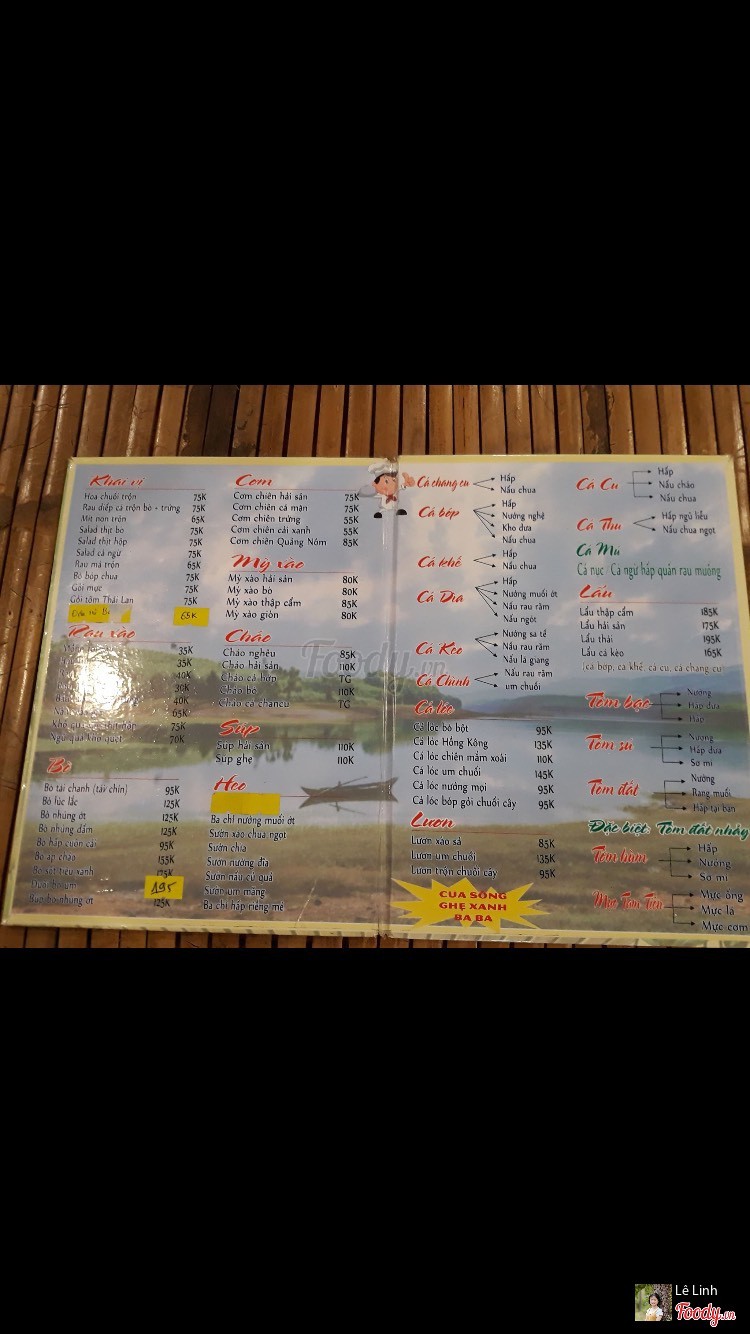 Khai vị
Hoa chuối trộn 75K
Rau diếp cá trộn bò + trứng 75K
Mít non trộn 65K
Salad thịt bò 75K
Salad thịt hộp 75K
Salad cá ngừ 75K
Rau má trộn 65K
Bò bóp chua 75K
Gỏi mực 75K
Gỏi tôm Thái Lan 75K
65K
Rau xào
35K
35K
40K
30K
40K
65K
75K
kho quẹt 70K
Bò
Bò tái chanh (tái chín) 95K
Bò lúc lắc 125K
Bò nhúng ớt 125K
Bò nhúng dấm 125K
Bò hấp cuốn cải 95K
Bò áp chảo 155K
Bò sốt tiêu xanh 175K
Đuôi bò um 195
Búp bò nhúng ớt 125K
Cơm
Cơm chiên hải sản 75K
Cơm chiên cá mặn 75K
Cơm chiên trứng 55K
Cơm chiên cải xanh 55K
Cơm chiên Quảng Nôm 85K
Mỳ xào
Mỳ xào hải sản 80K
Mỳ xào bò 80K
Mỳ xào thập cẩm 85K
Mỳ xào giòn 80K
Cháo
Cháo nghêu 85K
Cháo hải sản 110K
Cháo cá bớp TG
Cháo bò 110K
Cháo cá chancu TG
Súp
Súp hải sản 110K
Súp ghẹ 110K
Heo
Ba chỉ nướng muối ớt
Sườn xào chua ngọt
Sườn chìa
Sườn nướng đĩa
Sườn nấu củ quả
Sườn um măng
Ba chỉ hấp riềng mẻ
Cá chang cu
Hấp
Nấu chua
Cá bớp
Hấp
Nướng nghệ
Kho dưa
Nấu chua
Cá khế
Hấp
Nấu chua
Cá Dìa
Hấp
Nướng muối ớt
Nấu rau răm
Nấu ngót
Cá Kèo
Nướng sa tế
Nấu rau răm
Nấu lá giang
Cá Chình
Nấu rau răm
um chuối
Cá lóc
Cá lóc bò bột 95K
Cá lóc Hồng Kông 135K
Cá lóc chiên mắm xoài 110K
Cá lóc um chuối 145K
Cá lóc nướng mọi 95K
Cá lóc bóp gỏi chuối cây 95K
Lươn
Lươn xào sả 85K
Lươn um chuối 135K
Lươn trộn chuối cây 95K
CUA SÔNG
GHẸ XANH
BA BA
Cá Cu
Hấp
Nấu cháo
Nấu chua
Cá Thu
Hấp ngũ liễu
Nấu chua ngọt
Cá Mú
Cá nục, Cá ngừ hấp quấn rau muống
Lẩu
Lẩu thập cẩm 185K
Lẩu hải sản 175K
Lẩu thái 195K
Lẩu cá kèo 165K
(cá bớp, cá khế, cá cu, cá chang cu
Tôm bạc
Nướng
Hấp dừa
Hấp
Tôm sú
Nướng
Hấp dừa
Sò mi
Tôm đất
Nướng
Rang muối
Hấp tại bàn
Đặc biệt: Tôm đất nhảy
Tôm hùm
Hấp
Nướng
Sò mi
Mực Tam Tiến
Mực ống
Mực lá
Mực cơm
Foody.vn
Lê Linh
Foody.vn